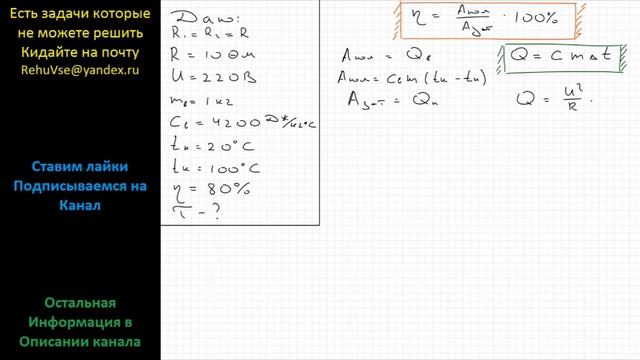 Есть задачи которые
не можете решить
Кидайте на почту
RehuVse@yandex.ru
Ставим лайки
Подписываемся на
Канал
Остальная
Информация в
Описании канала
Дано:
R₁ = R₂ = R
R = 10 Ом
U = 220 В
mв = 1 кг
Cв = 4200 Дж/кг°C
tн = 20°C
tк = 100°C
η = 80%
τ - ?
η = Aпол/Aзат · 100%
Aпол = Qв
Q = c m Δt
Aпол = cв m (tк - tн)
Aзат = Qн
Q = U²/R ·